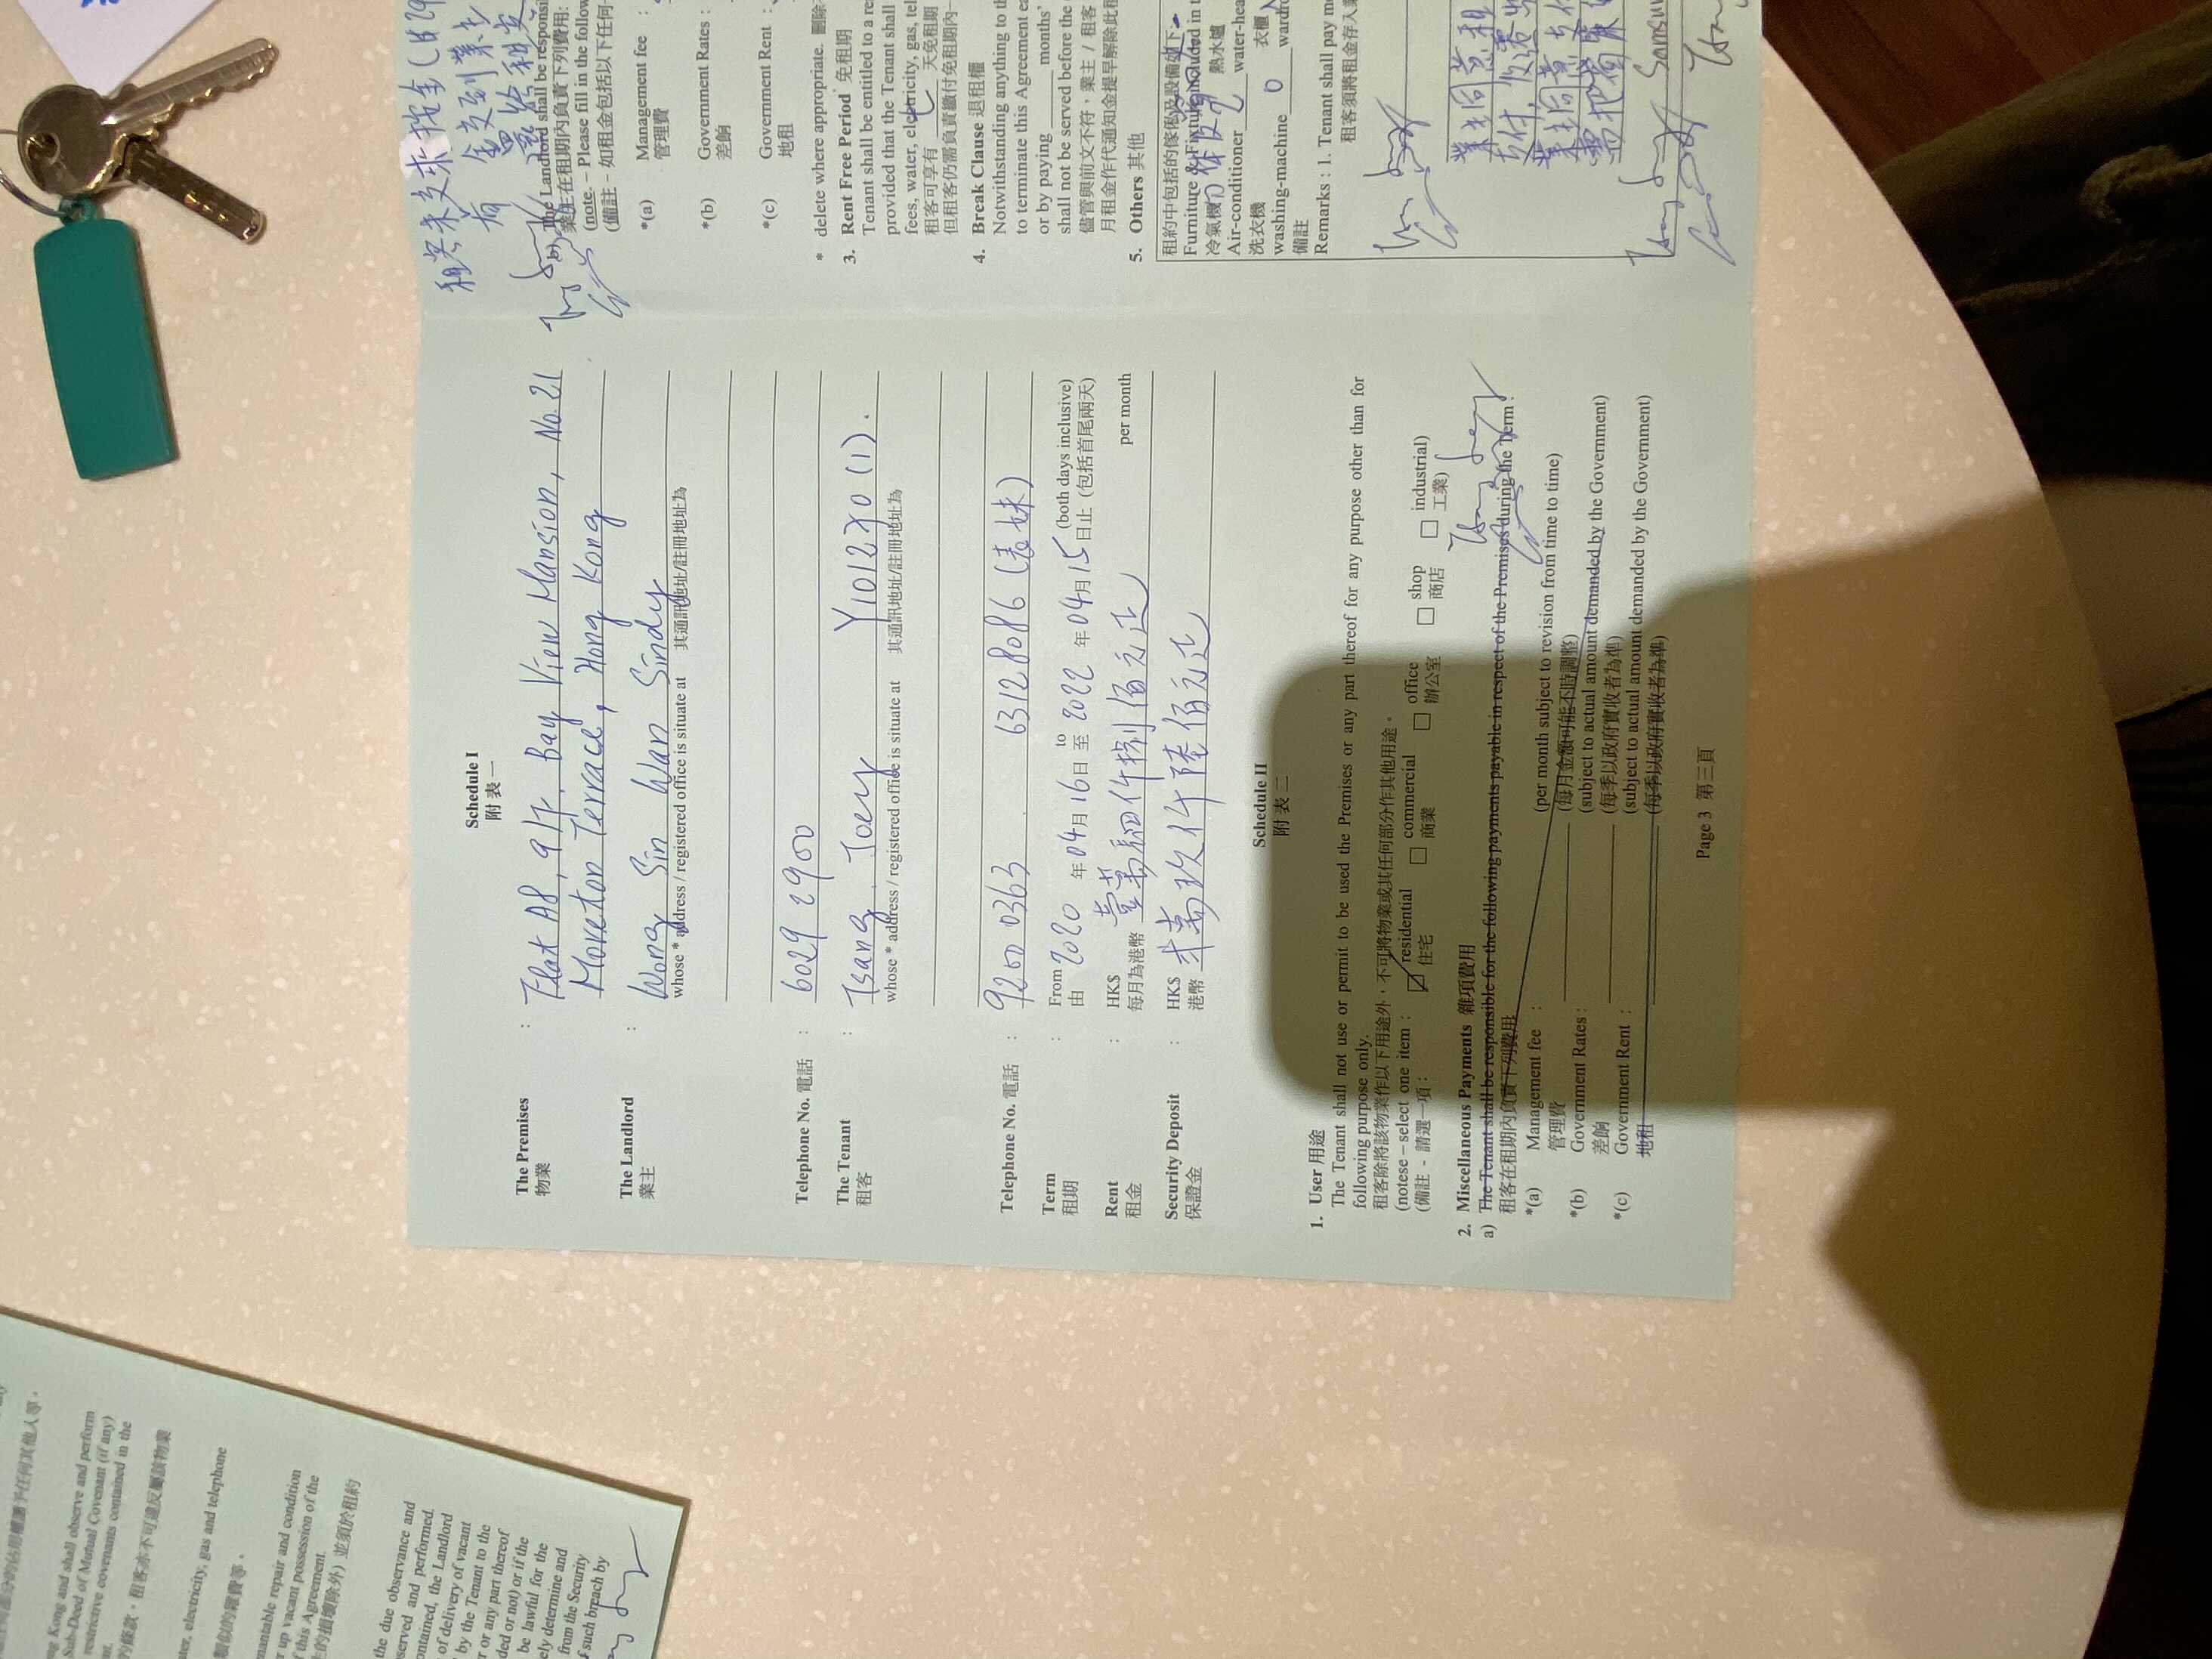 Schedule I
附 表 一
The Premises : Flat A8, 9/F, Bay View Mansion, No. 21
物業 Moreton Terrace, Hong Kong
The Landlord : Wong Sin Wan Sindy
業主 whose * address / registered office is situate at 其通訊地址/註冊地址為
Telephone No. 電話 : 6029 2900
The Tenant : Tsang Joey Y101270(1).
租客 whose * address / registered office is situate at 其通訊地址/註冊地址為
Telephone No. 電話 : 9200 0363 6312 8086 (表妹)
Term : From 2020 年 04 月 16 日 to 2022 年 04 月 15 (both days inclusive)
租期 由 至 日止 (包括首尾兩天)
Rent : HK$ 壹萬肆仟捌佰元正 per month
租金 每月為港幣
Security Deposit : HK$ 玖仟陸佰元正
保證金 港幣
Schedule II
附 表 二
1. User 用途
The Tenant shall not use or permit to be used the Premises or any part thereof for any purpose other than for
following purpose only.
租客除將該物業作以下用途外，不可將物業或其任何部分作其他用途。
(notese – select one item : ☑ residential □ commercial □ office □ shop □ industrial)
(備註 - 請選一項： 住宅 商業 辦公室 商店 工業)
2. Miscellaneous Payments 雜項費用
a) The Tenant shall be responsible for the following payments payable in respect of the Premises during the Term:
租客在租期內負責下列費用
*(a) Management fee : (per month subject to revision from time to time)
管理費 (每月金額可能不時調整)
*(b) Government Rates : (subject to actual amount demanded by the Government)
差餉 (每季以政府實收者為準)
*(c) Government Rent : (subject to actual amount demanded by the Government)
地租 (每季以政府實收者為準)
Page 3 第三頁
b) The Landlord shall be responsi
業主在租期內負責下列費用:
(note. – Please fill in the follow
(備註 – 如租金包括以下任何
*(a) Management fee :
管理費
*(b) Government Rates :
差餉
*(c) Government Rent :
地租
* delete where appropriate. 刪除
3. Rent Free Period 免租期
Tenant shall be entitled to a re
provided that the Tenant shall
fees, water, electricity, gas, tel
租客可享有 天免租期
但租客仍需負責繳付免租期內
4. Break Clause 退租權
Notwithstanding anything to th
to terminate this Agreement ea
or by paying months'
shall not be served before the
儘管與前文不符，業主 / 租客
月租金作代通知金提早解除此租
5. Others 其他
租約中包括的傢俬及設備如下:-
Furniture & Fixture included in t
冷氣機 熱水爐
Air-conditioner 2 water-hea
洗衣機 衣櫃
washing-machine 0 wardro
備註
Remarks : 1. Tenant shall pay mo
租客須將租金存入業
業主同意租
業主同意
Samsun
ng Kong and shall observe and perform
Sub-Deed of Mutual Covenant (if any)
restrictive covenants contained in the
的條款，租客亦不可違反屬該物業
ater, electricity, gas and telephone
類似的雜費等。
enantable repair and condition
r up vacant possession of the
f this Agreement.
的損壞除外) 並須於租約
the due observance and
served and performed.
ontained, the Landlord
of delivery of vacant
by the Tenant to the
r or any part thereof
ded or not) or if the
be lawful for the
ely determine and
from the Security
f such breach by